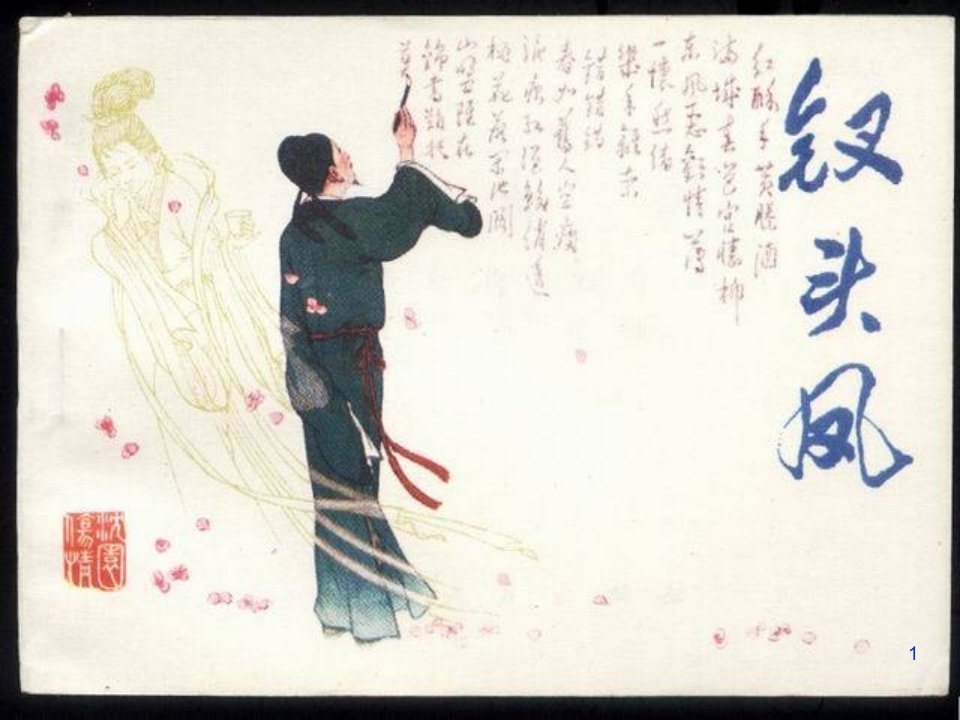 钗头凤
红酥手黄縢酒
满城春色宫墙柳
东风恶歡情薄
一懷愁绪
幾年離索
错错错
春如舊人空瘦
泪痕红浥鲛绡透
桃花落闲池阁
山盟雖在
锦書難托
莫
沈園
傷情
1